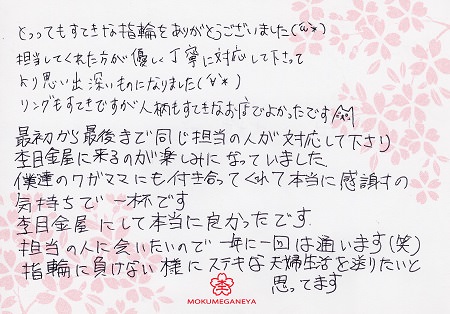 とってもすてきな指輪をありがとうございました(^v^*)
担当してくれた方が優しく丁寧に対応して下さって
より思い出深いものになりました(^v^*)
リングもすてきですが人柄もすてきなお店でよかったです^^
最初から最後まで同じ担当の人が対応して下さり
杢目金屋に来るのが楽しみになっていました。
僕達のワガママにも付き合ってくれて本当に感謝の
気持ちで一杯です
杢目金屋にして本当に良かったです.
担当の人に会いたいので一年に一回は通います(笑)
指輪に負けない様にステキな夫婦生活を送りたいと
思ってます
MOKUMEGANEYA